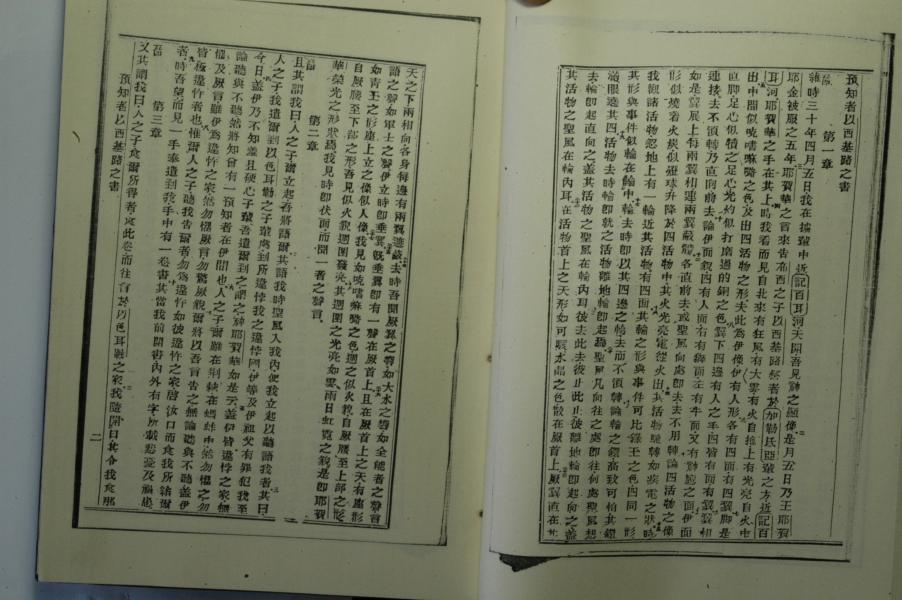 預知者以西基路之書
第一章
維時三十年四月五日我在擄輩中近記百耳河天開吾見神之顯像是月五日乃王耶
耶金被服之五年耶賀華之言來告布西之子以西基路祭者於加勒氐亞輩之方近記百
耳河耶賀華之手在其上時我看而見自北來有狂風有大雲有火自捲上有光亮自火中
出中間似琥珀之色及出四活物之形夫此為伊像伊有人形各有四面有四翼脚是
直脚足心似犢之足心光灼似打磨過的銅之色翼下四邊有人之手四皆有面有翼翼相
連接去不須轉乃直向前去論伊面貌四有人面右有獅面左有牛面又有鷹之面伊面
如是翼展上每兩翼相連兩翼蔽體各直前去或聖風向處即去去不用轉論四活物之像
形似燒着火炭似燈球升降於四活物中其火光亮電從火出其活物馳轉如疾電之狀時
我觀諸活物忽地上有一輪近其活物有四面其輪之形與事件可比錄玉之色四同一形
其形與事件似輪在輪中輪去時即以其四邊之恰去而不須轉論輪之鐶高致可怕其鐶
滿眼遶其四活物去時輪即就之活物離地輪即起為聖風凡向往之處即往何處聖風起
去輪即起直向之蓋其活物之聖風在輪內耳彼去此去彼止此止彼離地輪即起向之蓋
其活物之聖風在輪內耳在活物首上之天形如可駭水晶之色散在厥首上厥翼直在於
天之下兩相向各身每邊有兩翼遮蔽去時吾聞厥翼之聲如大水之聲如全能者之聲言
語之聲如軍士之聲伊立時即垂翼既垂翼即有一聲在厥首上且在厥首上之天有座形
如青玉之形座上立之像似人像我見如琥珀之色週圍之似火貌自厥腰至上部之形
自厥腰至下部之形吾見似火貌週圍發亮其週圍之光亮如雲雨日虹霓之貌是即耶賀
華榮光之形狀焉我見時即伏面而聞一者之聲言
第二章
且其謂我曰人之子爾立起吾將語爾其語我時聖風入我內使我立起以聽語我者其曰
人之子我遣爾到以色耳勒之子輩處到所違悖我之違悖國伊等及伊祖父有罪犯我至
今日蓋伊乃不知羞且硬心子輩吾遣爾到之謂之神耶賀華如是云蓋伊皆違悖之家無
論聽與不聽然將知曾有一預知者在伊間也人之子爾雖在荊棘在螞蚌中然勿懼之勿
懼及厥言雖伊為違悖之家然勿懼厥言勿驚厥貌爾將以吾言告之無論聽與不聽蓋伊
皆極違悖者也惟爾人之子聽我告爾者勿為違悖如彼違悖之家啓汝口而食我所給爾
者時吾望而見一手奉遣到我手中有一卷書其當我前開書內外有字所載悲憂及禍患
第三章
又其謂我曰人之子食爾所得者食此卷而往言於以色耳勒之家我隨開口其令我食那
預知者以西基路之書
二